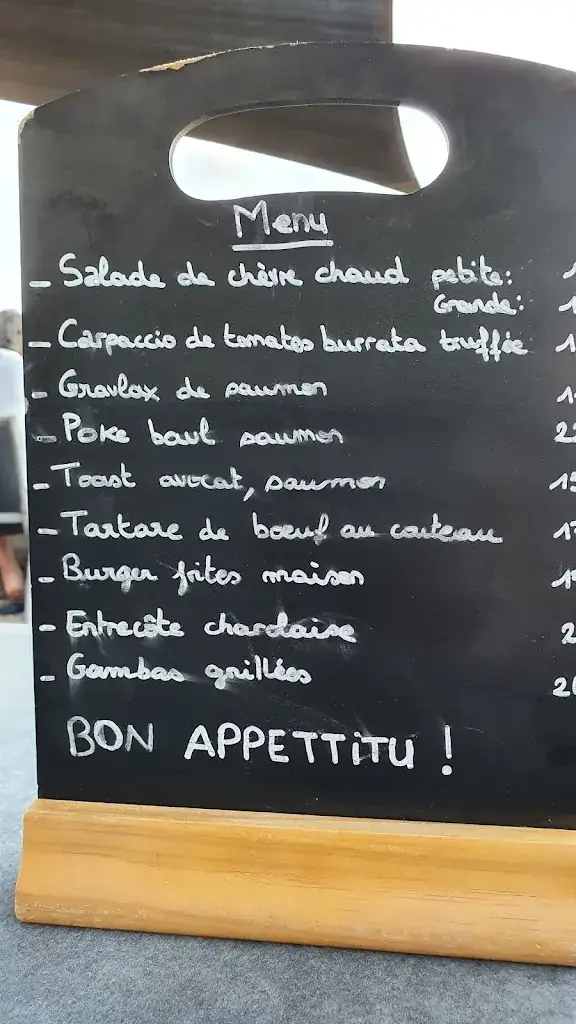 Menu
- Salade de chèvre chaud petite:
Grande:
- Carpaccio de tomates burrata truffée
- Gravlax de saumon
- Poke bowl saumon
- Toast avocat, saumon
- Tartare de bœuf au couteau
- Burger frites maison
- Entrecôte charolaise
- Gambas grillées
BON APPETTiTU !